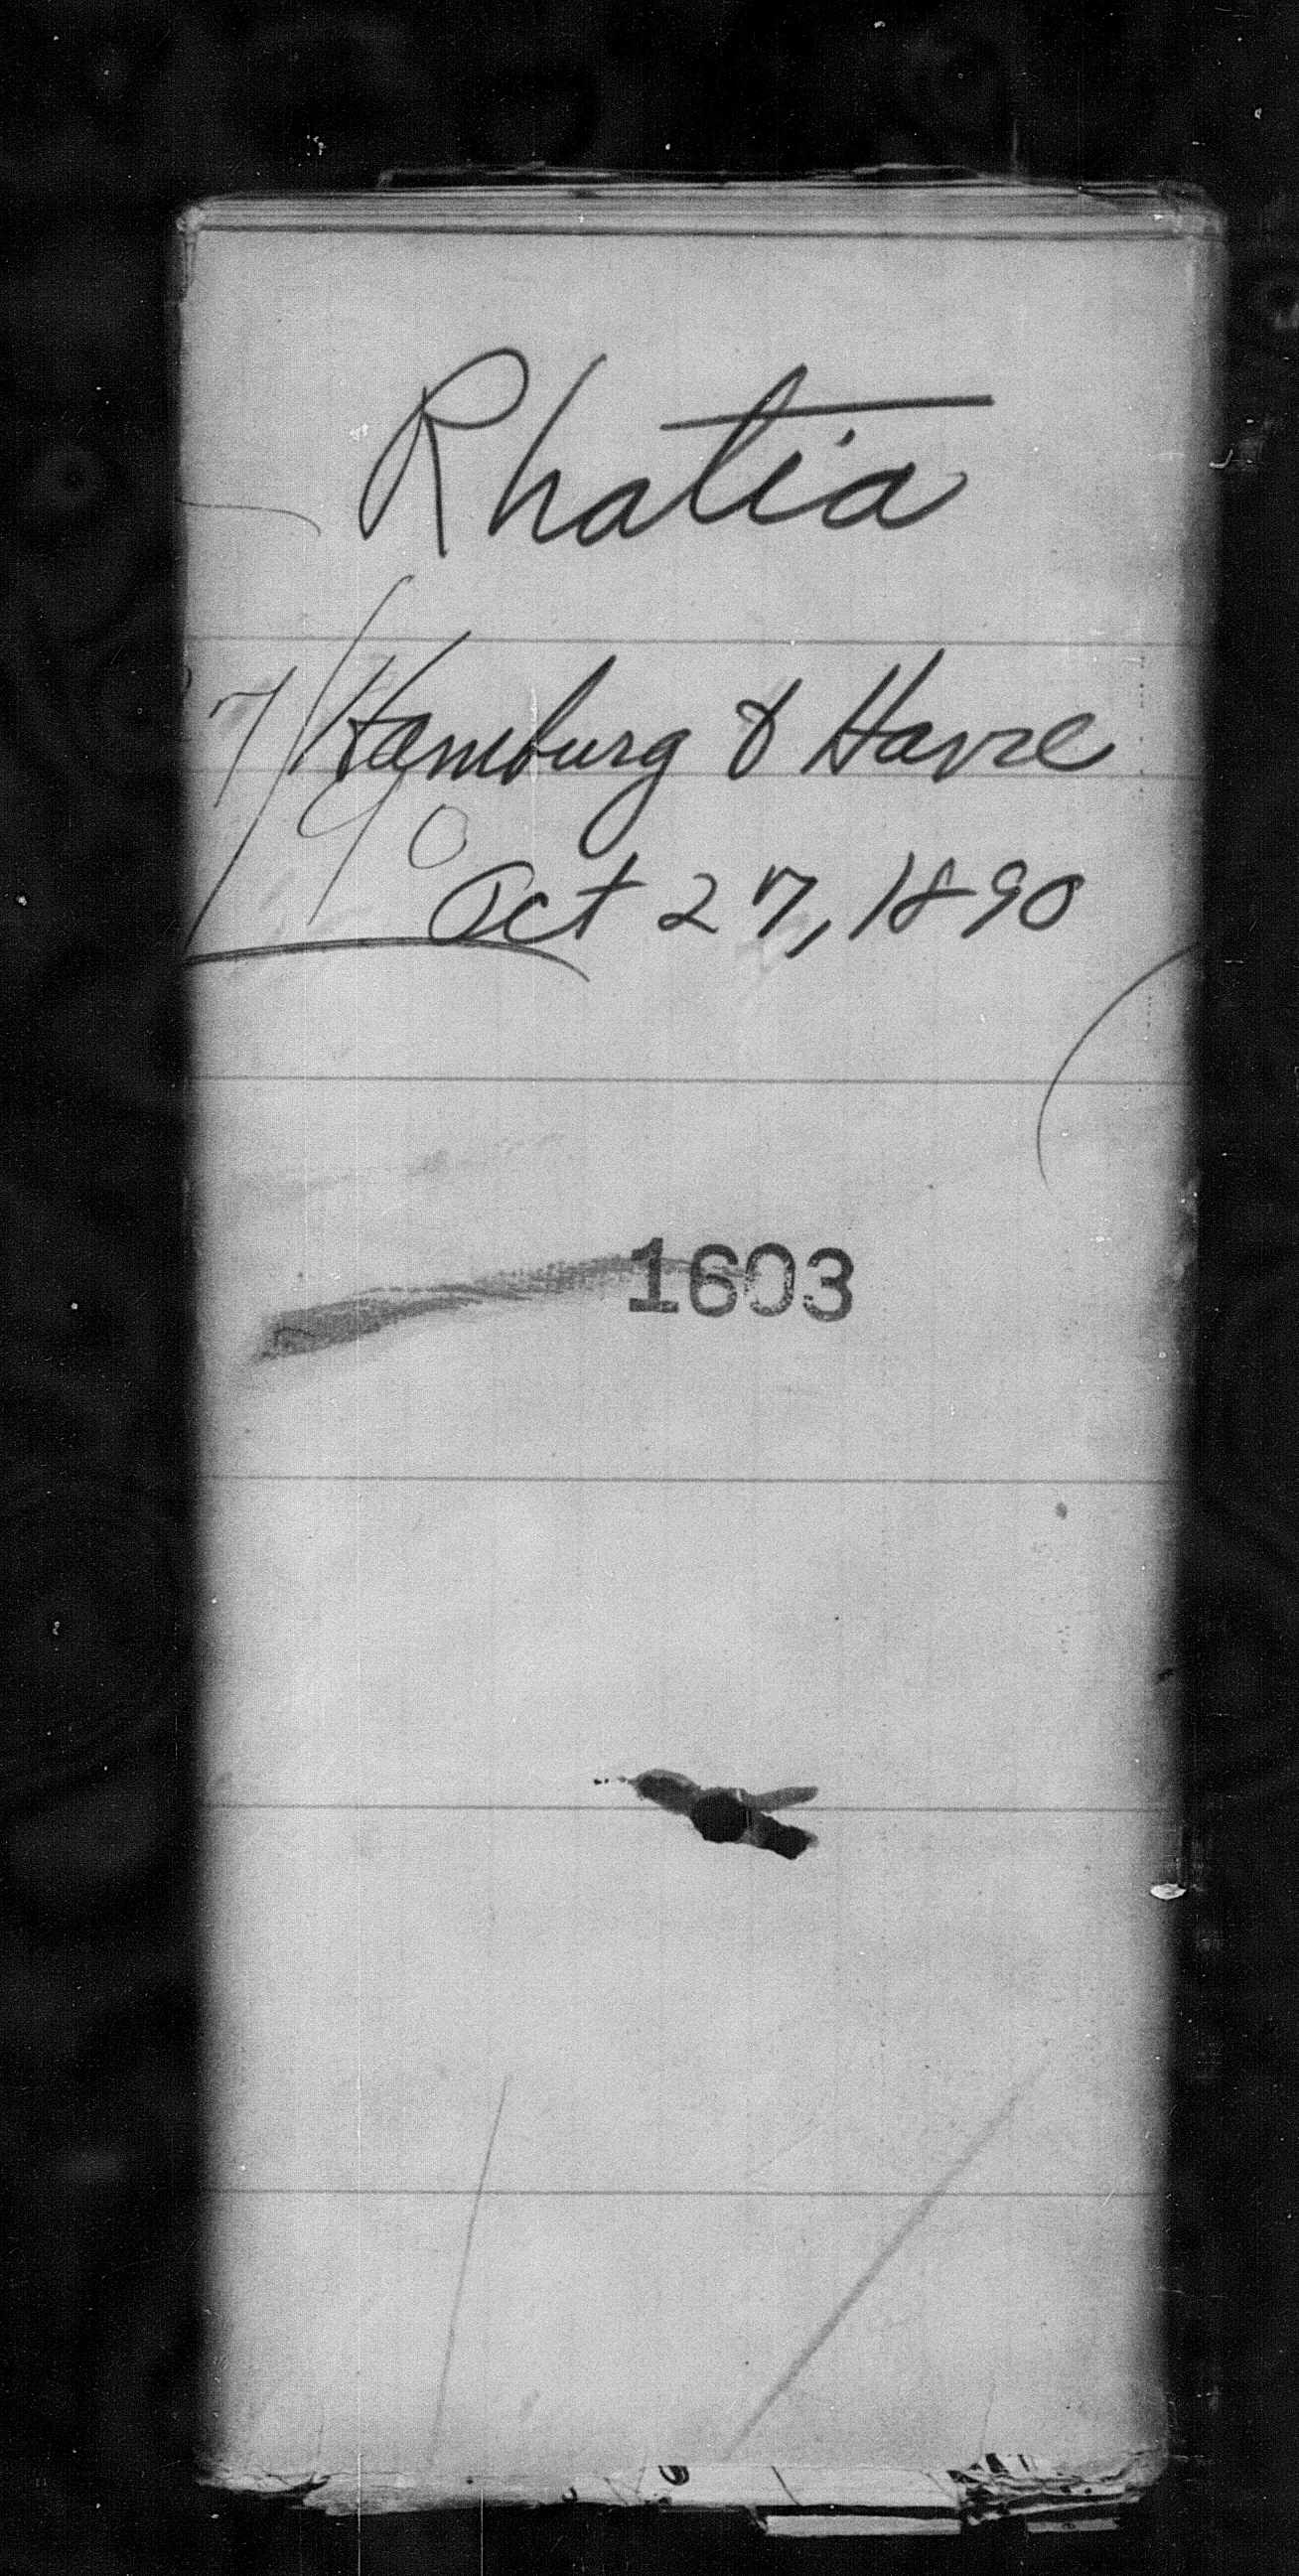 Rhatia
Hamburg & Havre
Oct 27, 1890
1603